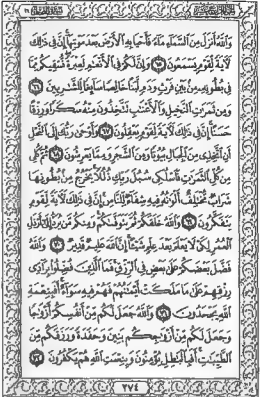 وَٱللَّهُ أَنزَلَ مِنَ ٱلسَّمَآءِ مَآءً فَأَحْيَا بِهِ ٱلْأَرْضَ بَعْدَ مَوْتِهَآ إِنَّ فِى ذَٰلِكَ
لَـَٔايَةً لِّقَوْمٍ يَسْمَعُونَ ٦٥ وَإِنَّ لَكُمْ فِى ٱلْأَنْعَٰمِ لَعِبْرَةً نُّسْقِيكُم مِّمَّا
فِى بُطُونِهِۦ مِنۢ بَيْنِ فَرْثٍ وَدَمٍ لَّبَنًا خَالِصًا سَآئِغًا لِّلشَّٰرِبِينَ ٦٦
وَمِن ثَمَرَٰتِ ٱلنَّخِيلِ وَٱلْأَعْنَٰبِ تَتَّخِذُونَ مِنْهُ سَكَرًا وَرِزْقًا
حَسَنًا إِنَّ فِى ذَٰلِكَ لَـَٔايَةً لِّقَوْمٍ يَعْقِلُونَ ٦٧ وَأَوْحَىٰ رَبُّكَ إِلَى ٱلنَّحْلِ
أَنِ ٱتَّخِذِى مِنَ ٱلْجِبَالِ بُيُوتًا وَمِنَ ٱلشَّجَرِ وَمِمَّا يَعْرِشُونَ ٦٨ ثُمَّ كُلِى
مِن كُلِّ ٱلثَّمَرَٰتِ فَٱسْلُكِى سُبُلَ رَبِّكِ ذُلُلًا يَخْرُجُ مِنۢ بُطُونِهَا
شَرَابٌ مُّخْتَلِفٌ أَلْوَٰنُهُۥ فِيهِ شِفَآءٌ لِّلنَّاسِ إِنَّ فِى ذَٰلِكَ لَـَٔايَةً لِّقَوْمٍ
يَتَفَكَّرُونَ ٦٩ وَٱللَّهُ خَلَقَكُمْ ثُمَّ يَتَوَفَّىٰكُمْ وَمِنكُم مَّن يُرَدُّ إِلَىٰٓ أَرْذَلِ
ٱلْعُمُرِ لِكَىْ لَا يَعْلَمَ بَعْدَ عِلْمٍ شَيْـًٔا إِنَّ ٱللَّهَ عَلِيمٌ قَدِيرٌ ٧٠ وَٱللَّهُ
فَضَّلَ بَعْضَكُمْ عَلَىٰ بَعْضٍ فِى ٱلرِّزْقِ فَمَا ٱلَّذِينَ فُضِّلُوا۟ بِرَآدِّى
رِزْقِهِمْ عَلَىٰ مَا مَلَكَتْ أَيْمَٰنُهُمْ فَهُمْ فِيهِ سَوَآءٌ أَفَبِنِعْمَةِ
ٱللَّهِ يَجْحَدُونَ ٧١ وَٱللَّهُ جَعَلَ لَكُم مِّنْ أَنفُسِكُمْ أَزْوَٰجًا
وَجَعَلَ لَكُم مِّنْ أَزْوَٰجِكُم بَنِينَ وَحَفَدَةً وَرَزَقَكُم مِّنَ
ٱلطَّيِّبَٰتِ أَفَبِٱلْبَٰطِلِ يُؤْمِنُونَ وَبِنِعْمَتِ ٱللَّهِ هُمْ يَكْفُرُونَ ٧٢
٢٧٤